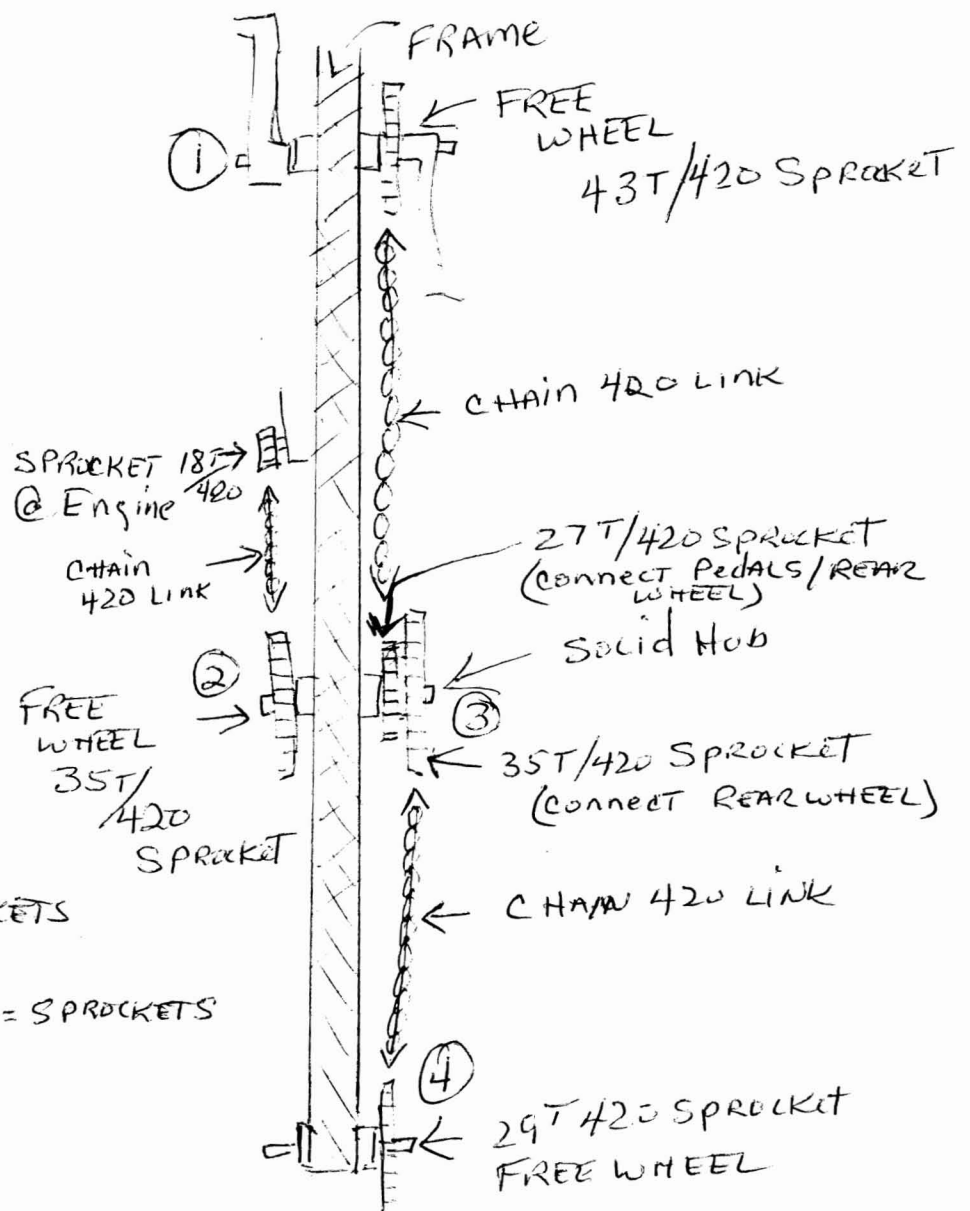 FRAME
FREE
WHEEL
43T/420 SPROCKET
①
CHAIN 420 LINK
SPROCKET 18T
/420
@ Engine
CHAIN
420 LINK
27T/420 SPROCKET
(CONNECT PEDALS/REAR
WHEEL)
SOLID HUB
②
③
FREE
WHEEL
35T/
420
SPROCKET
35T/420 SPROCKET
(CONNECT REAR WHEEL)
CHAIN 420 LINK
KETS
= SPROCKETS
④
29T 420 SPROCKET
FREE WHEEL